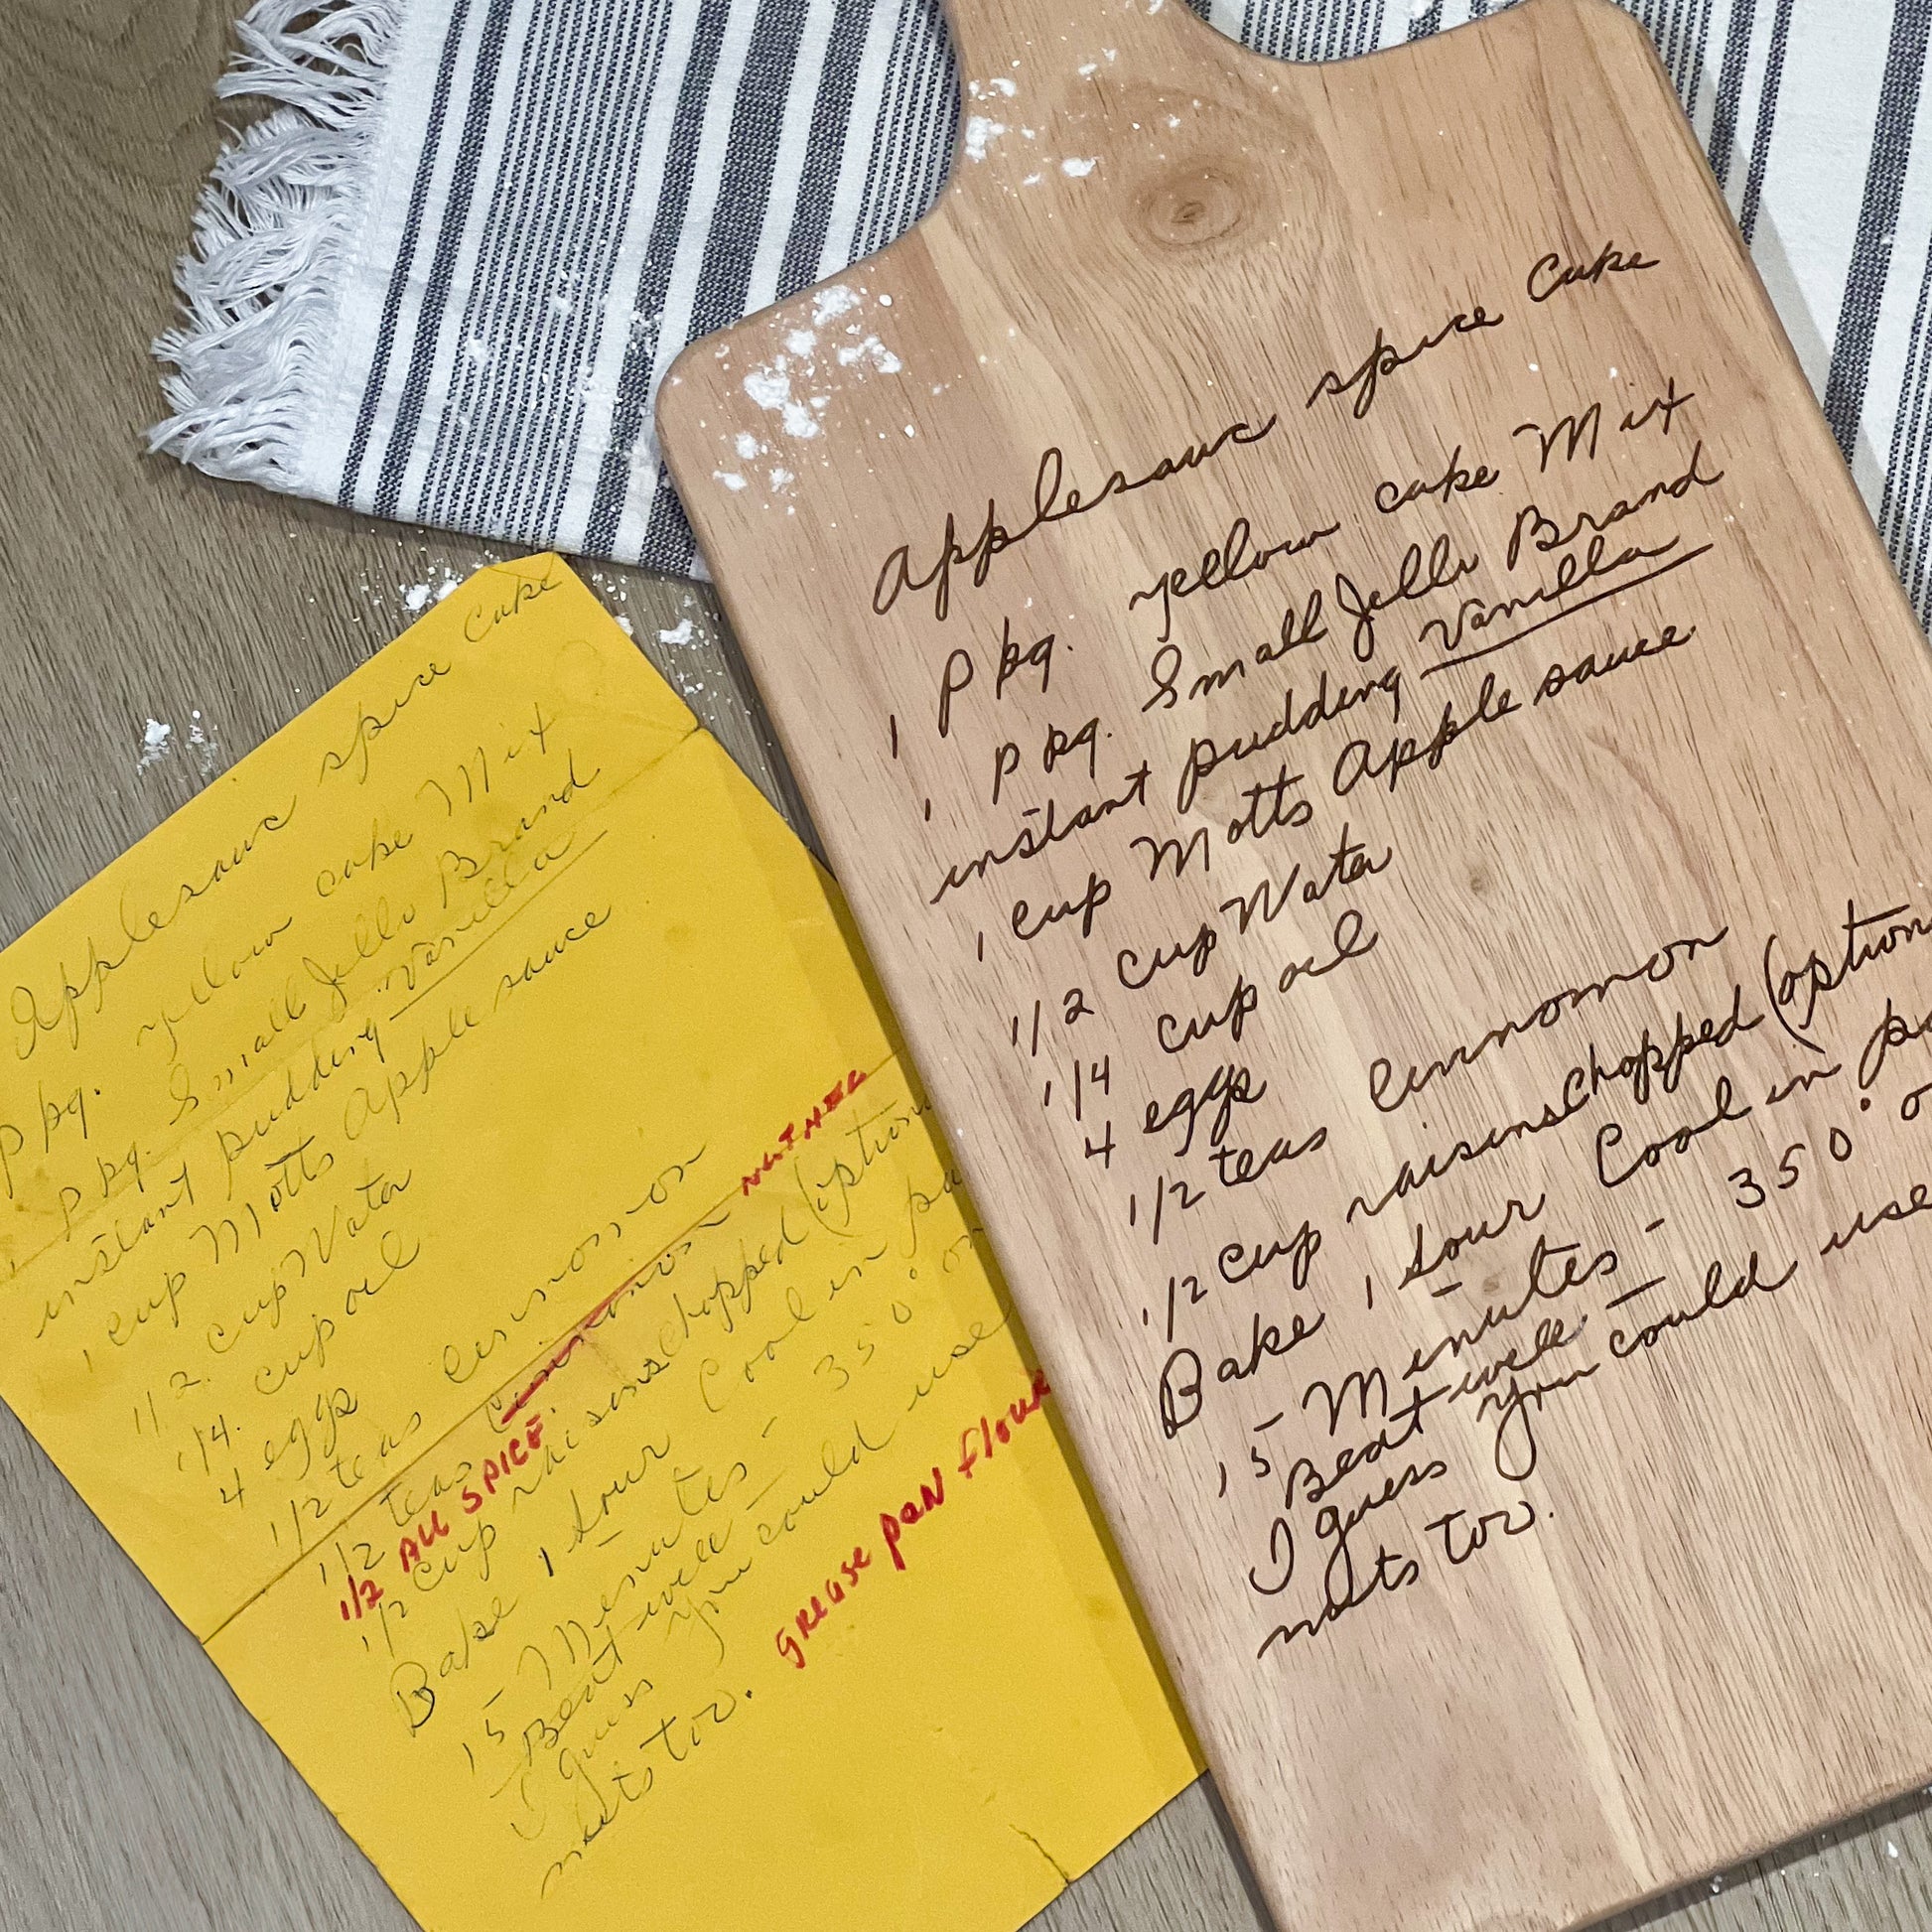 Applesauc spice Cake
P kg. yellow cake Mix
P kg. Small Jello Brand
instant pudding "Vanilla
1 cup Motts Apple sauce
1/2. cup Wata
1/4. cup oil
4 eggs
1/2 teas cinnomon
1/2 teas cinnomon NUTMEG
1/2 ALL SPICE.
1/2 cup raisins chopped (option
Bake 1 hour Cool in pa
15 Minutes - 350° on
Beat well
I guess you could use
nuts too. GREASE PAN FLOUR
Applesauc spice Cake
1 P kg. yellow cake Mix
1 P kg. Small Jello Brand
instant pudding Vanilla
1 cup Motts Apple sauce
1/2 cup Wata
1/4 cup oil
4 eggs
1/2 teas cinnomon
1/2 cup raisins chopped (option
Bake 1 hour Cool in pa
15 Minutes - 350° o
Beat well
I guess you could use
nuts too.